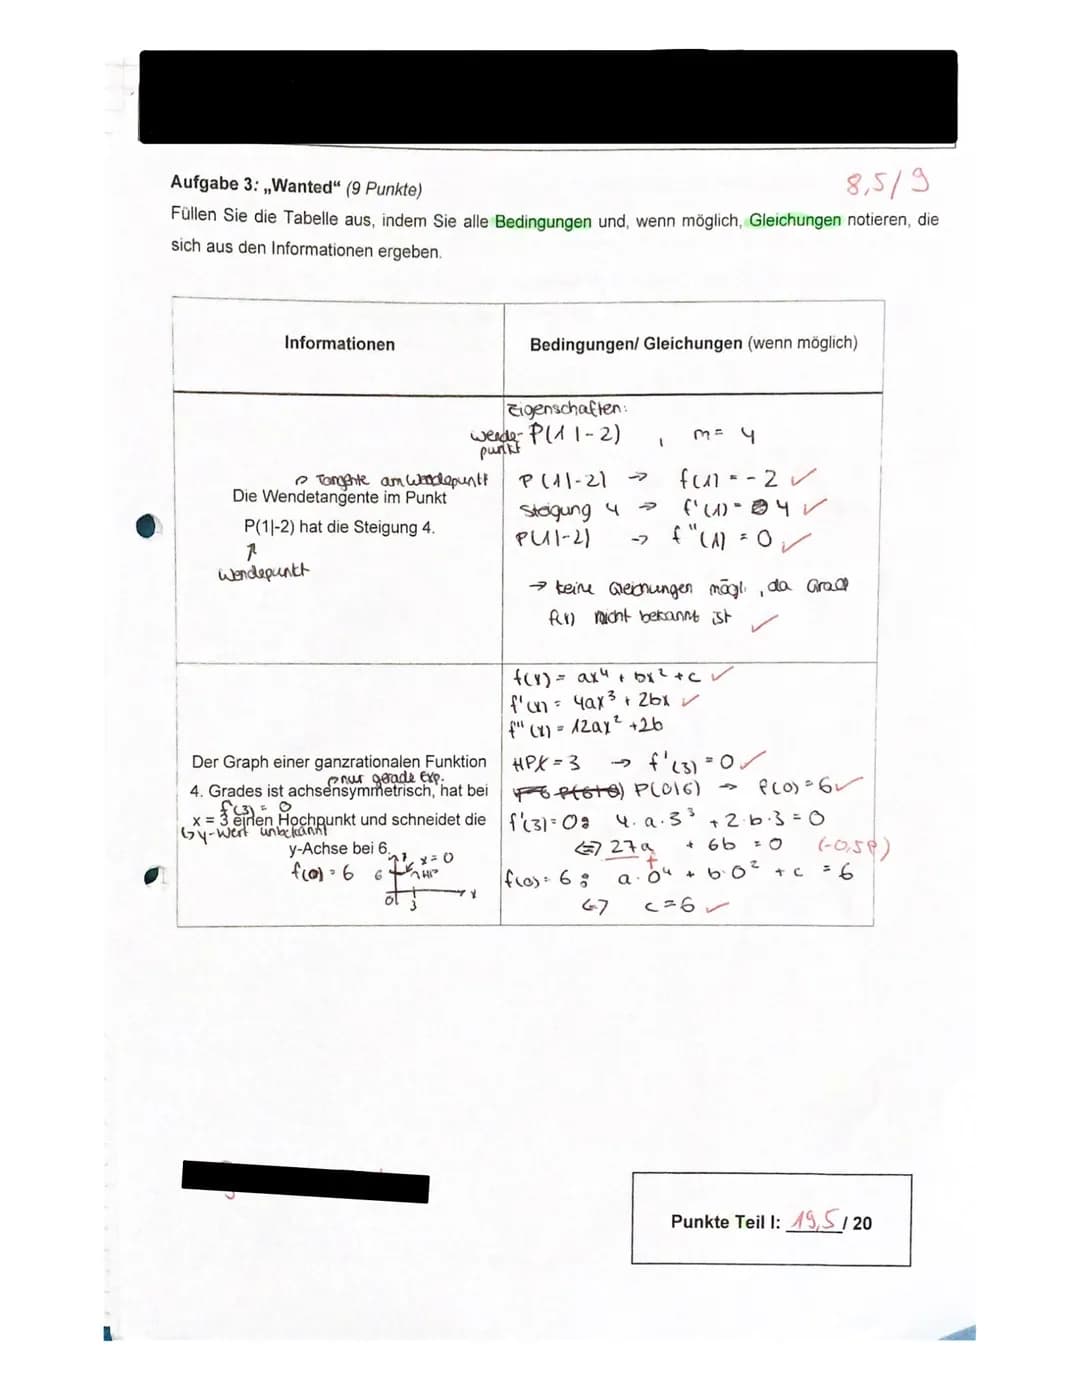 Aufgabe 3: „Wanted“ (9 Punkte)
8,5/9
Füllen Sie die Tabelle aus, indem Sie alle Bedingungen und, wenn möglich, Gleichungen notieren, die
sich aus den Informationen ergeben.
Informationen
Bedingungen/ Gleichungen (wenn möglich)
Tangente am Wendepunkt
Die Wendetangente im Punkt
P(1|-2) hat die Steigung 4.
↑
Wendepunkt
Eigenschaften:
Wende-punkt P(1|-2) , m = 4
P(1|-2) → f(1) = -2 ✓
Steigung 4 → f'(1) = 4 ✓
P(1|-2) → f"(1) = 0 ✓
→ keine Gleichungen mögl., da Grad
f(x) nicht bekannt ist ✓
Der Graph einer ganzrationalen Funktion
nur gerade Exp.
4. Grades ist achsensymmetrisch, hat bei
f'(3) = 0
x = 3 einen Hochpunkt und schneidet die
↳ y-Wert unbekannt
y-Achse bei 6.
f(0) = 6
x=0
6
HP
0 3
x
f(x) = ax⁴ + bx² + c ✓
f'(x) = 4ax³ + 2bx ✓
f"(x) = 12ax² + 2b
HP x = 3 → f'(3) = 0 ✓
P(0|6) → f(0) = 6 ✓
f'(3) = 0: 4·a·3³ + 2·b·3 = 0
⇔ 27a + 6b = 0 (-0,5P)
f
f(0) = 6: a·0⁴ + b·0² + c = 6
⇔ c = 6 ✓
Punkte Teil I: 19,5 / 20